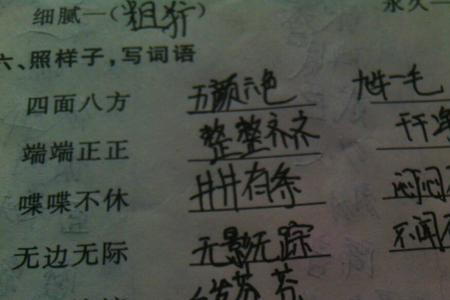 细腻—(粗犷) 永久—
六、照样子,写词语
四面八方 五颜六色 九牛一毛
端端正正 整整齐齐 干干净
喋喋不休 井井有条 闷闷
无边无际 无影无踪 不闻不